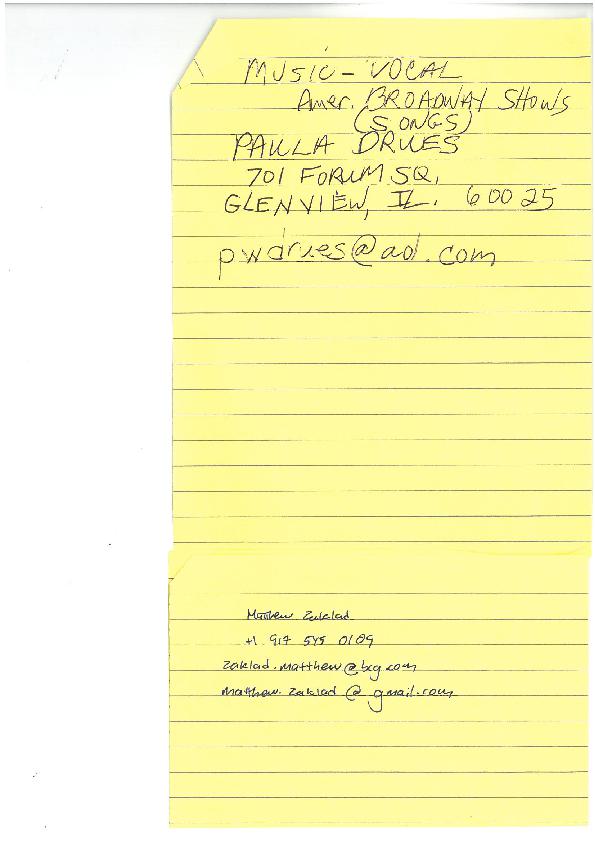 MUSIC - VOCAL
Amer. BROADWAY SHOWS
(SONGS)
PAULA DRUES
701 FORUM SQ,
GLENVIEW, IL. 60025
pwdrues@aol.com
Matthew Zaklad
+1 917 545 0109
zaklad.matthew@bcg.com
matthew.zaklad@gmail.com